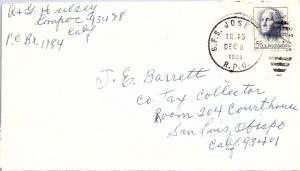 Lompoc 93438
Calif
P.O. Bx. 1984
S.F. & S. JOSE
TR. 75
DEC 8
R.P.O.
5¢ U.S. POSTAGE
J. E. Barrett
Co. Tax Collector
Room 204 Courthouse
San Luis, Obispo
Calif. 93401